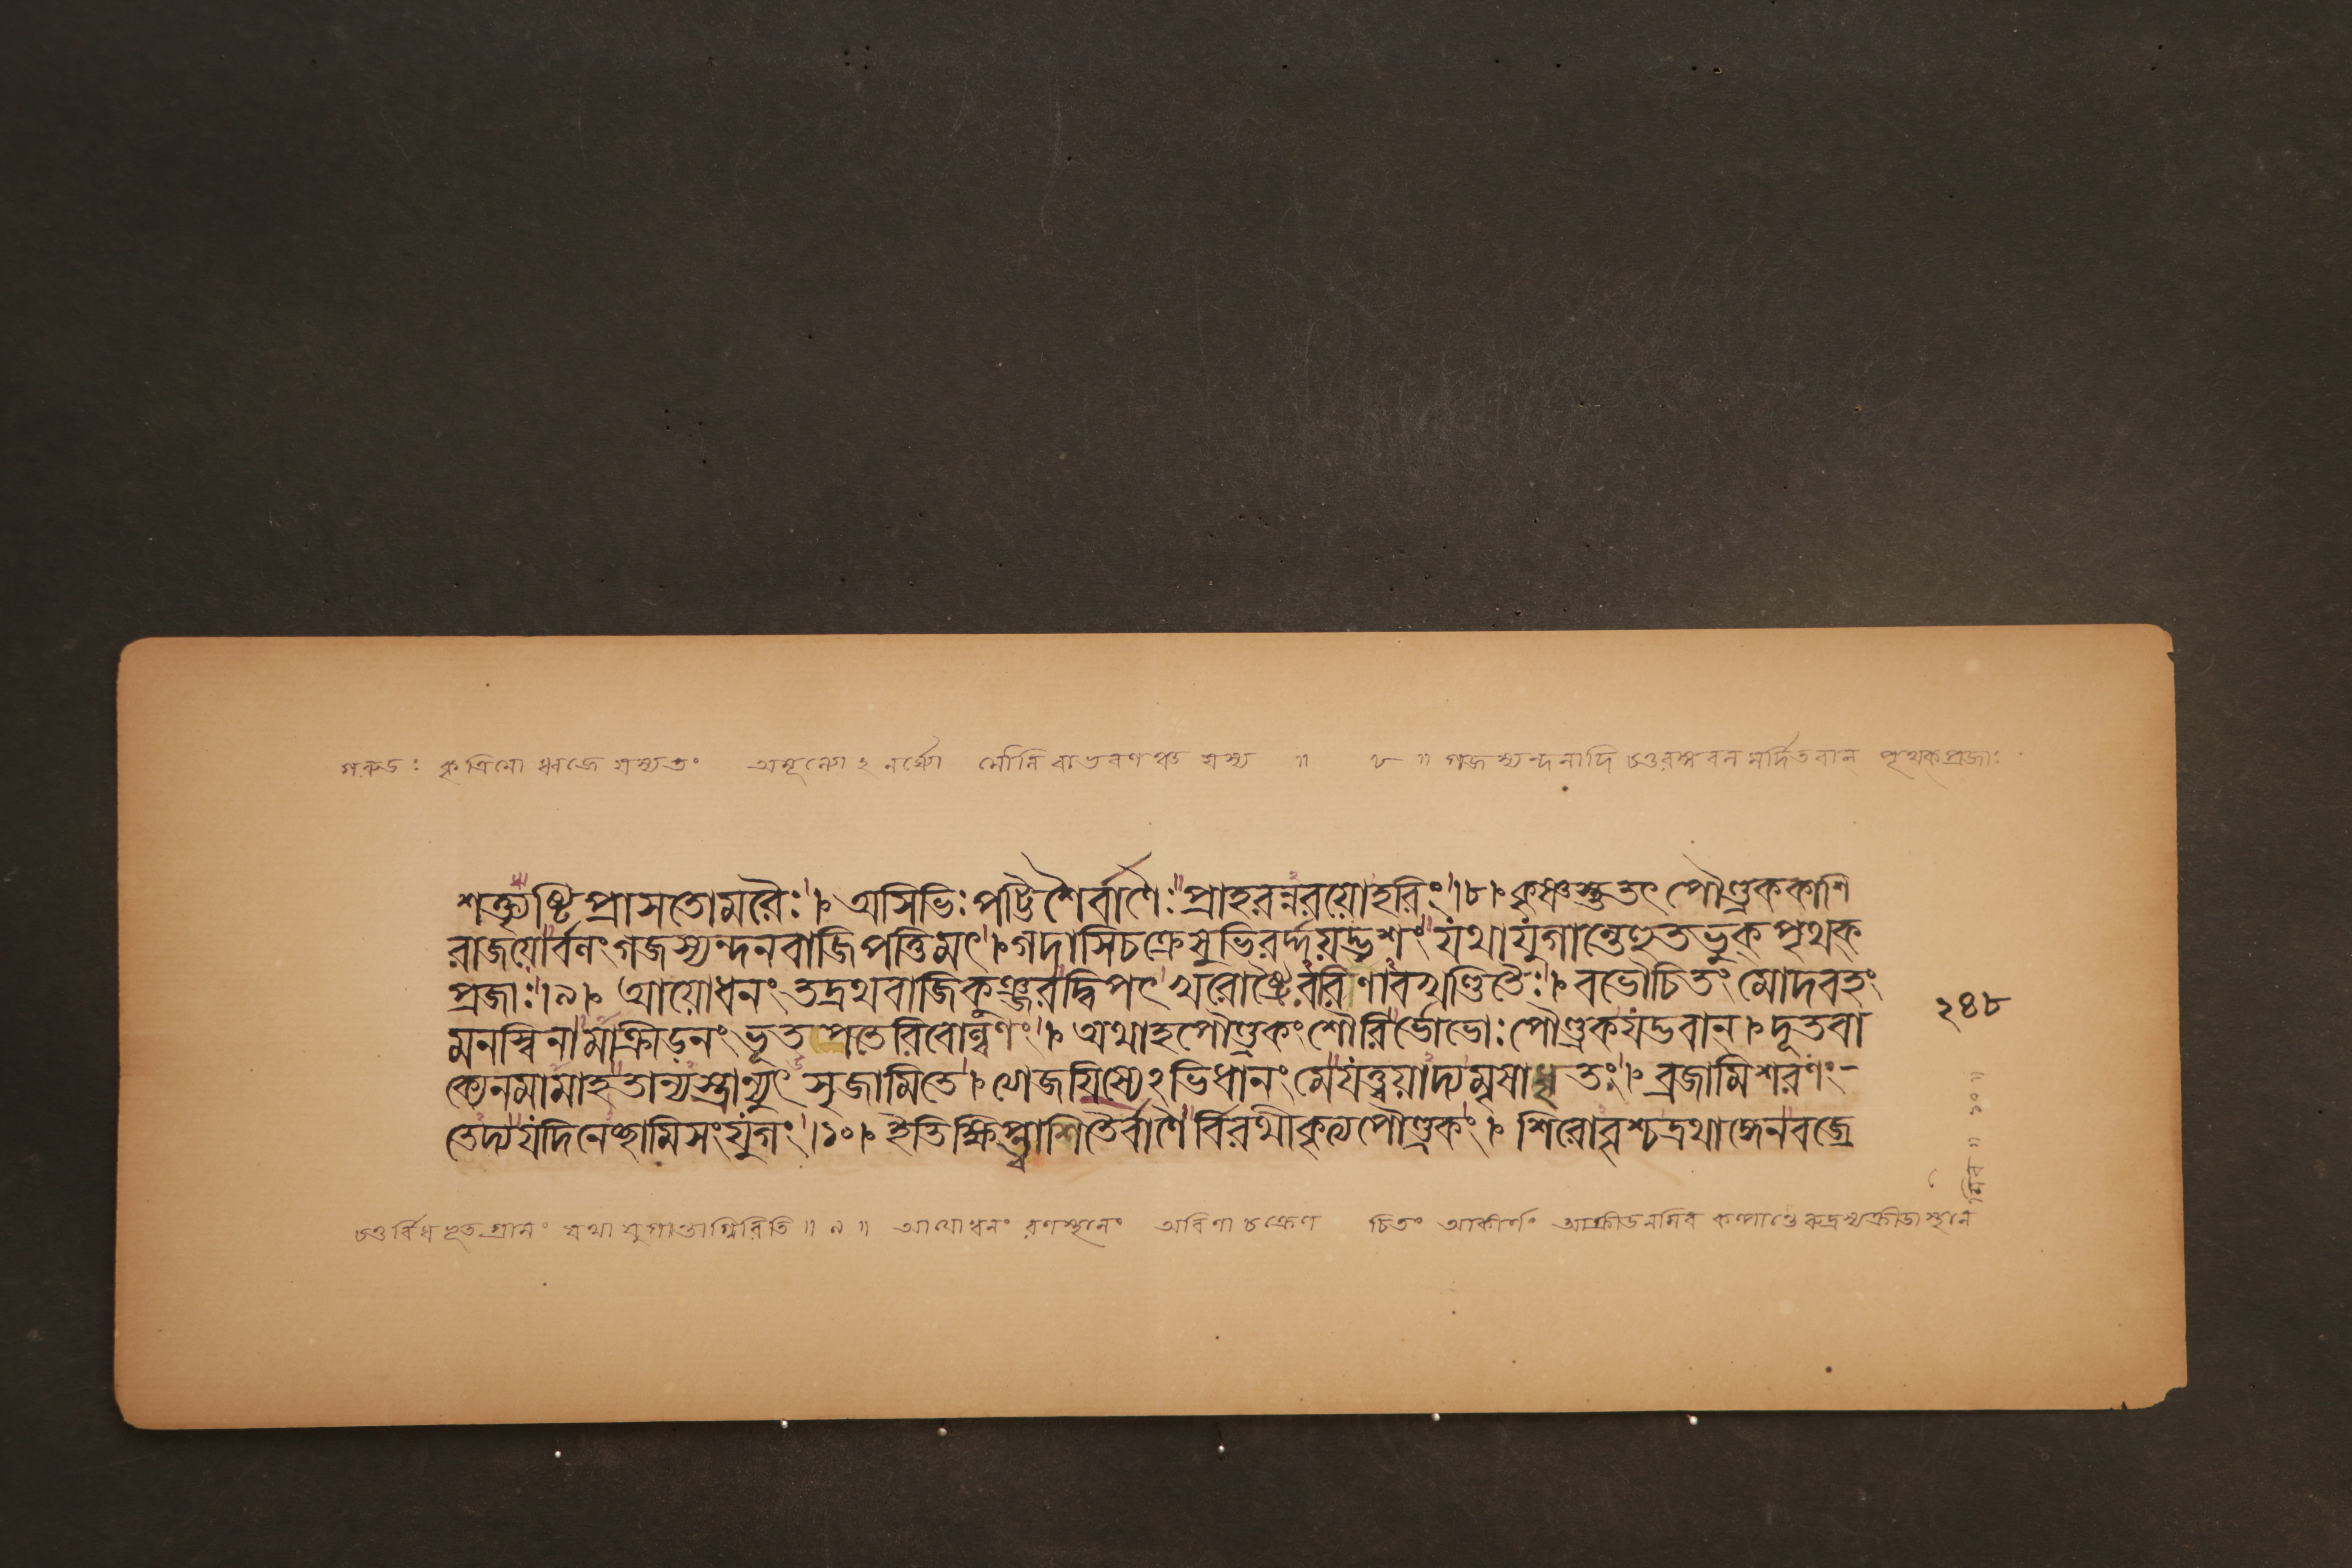 গরুডঃ কৃত্রিমো ধ্বজে যস্য তং অমূল্যে২নর্ঘ্যে মৌলিরাভরণঞ্চ যস্য ॥ ৮ ॥ গজস্যন্দনাদি চতুরঙ্গবলমর্দিতবান্ পৃথক্প্রজাঃ
শক্ত্যৃষ্টিপ্রাসতোমরৈঃ। অসিভিঃ পট্টিশৈর্বাণৈঃ প্রাহরন্নরয়োহরিং।৮। কৃষ্ণস্তুতৎ পৌণ্ড্রককাশি
রাজয়োর্বণং গজস্যন্দনবাজিপত্তিমৎ। গদাসিচক্রেসুভিরর্দ্দয়দ্ভৃশং যথাযুগান্তেহুতভুক পৃথক্
প্রজাঃ।৯। আয়োধনং তদ্রথবাজিকুঞ্জরদ্বিপৎ খরোষ্ট্রৈররিণাবখণ্ডিতৈঃ। বভৌচিতং মোদবহং
মনস্বিনামাক্রীড়নং ভূতপতেরিবোল্বণং। অথাহপৌণ্ড্রকং শৌরির্ভোভোঃ পৌণ্ড্রকযদ্ভবান্। দূতবা
ক্যেনমামাহ তান্যস্ত্রান্যুৎ সৃজামিতে। থেজয়িষ্যে২ভিধানং মেযত্ত্বয়াদ্যমৃষাধৃতং। ব্রজামিশরণং-
তেদ্যযদিনেচ্ছামিসংযুগং।১০। ইতিক্ষিপ্ত্বাশিতৈর্বাণৈ র্বিরথীকৃত্যপৌণ্ড্রকং। শিরোবৃশ্চদ্রথাঙ্গেনবজ্রে
২৪৮
চতুর্বিধভূতগ্রামং যথা যুগান্তাগ্নিরিতি ॥ ৯ ॥ আযোধনং রণস্থানং অরিণা চক্রেণ চিতং আকীর্ণং আক্রীডনমিব কল্পান্তে রুদ্রস্যক্রীডাস্থানে
মিব ॥ ১০ ॥